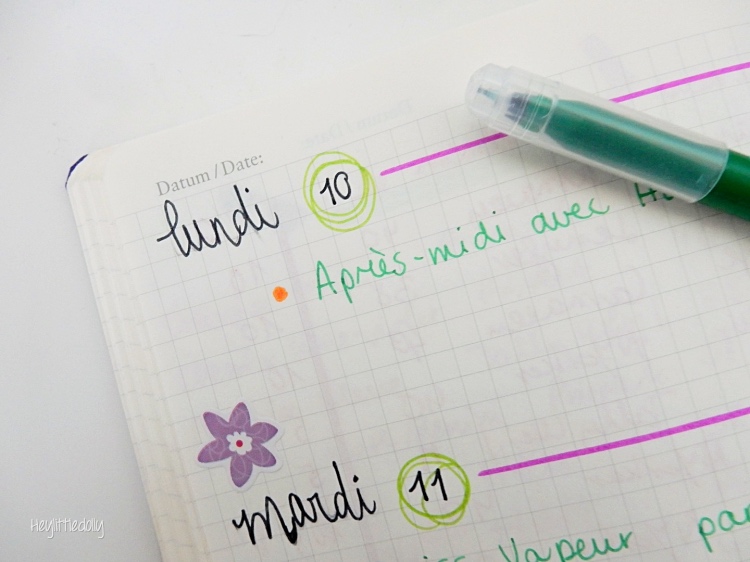 Datum / Date:
lundi 10
Après-midi avec
mardi 11
Vapeur
Heylittledolly